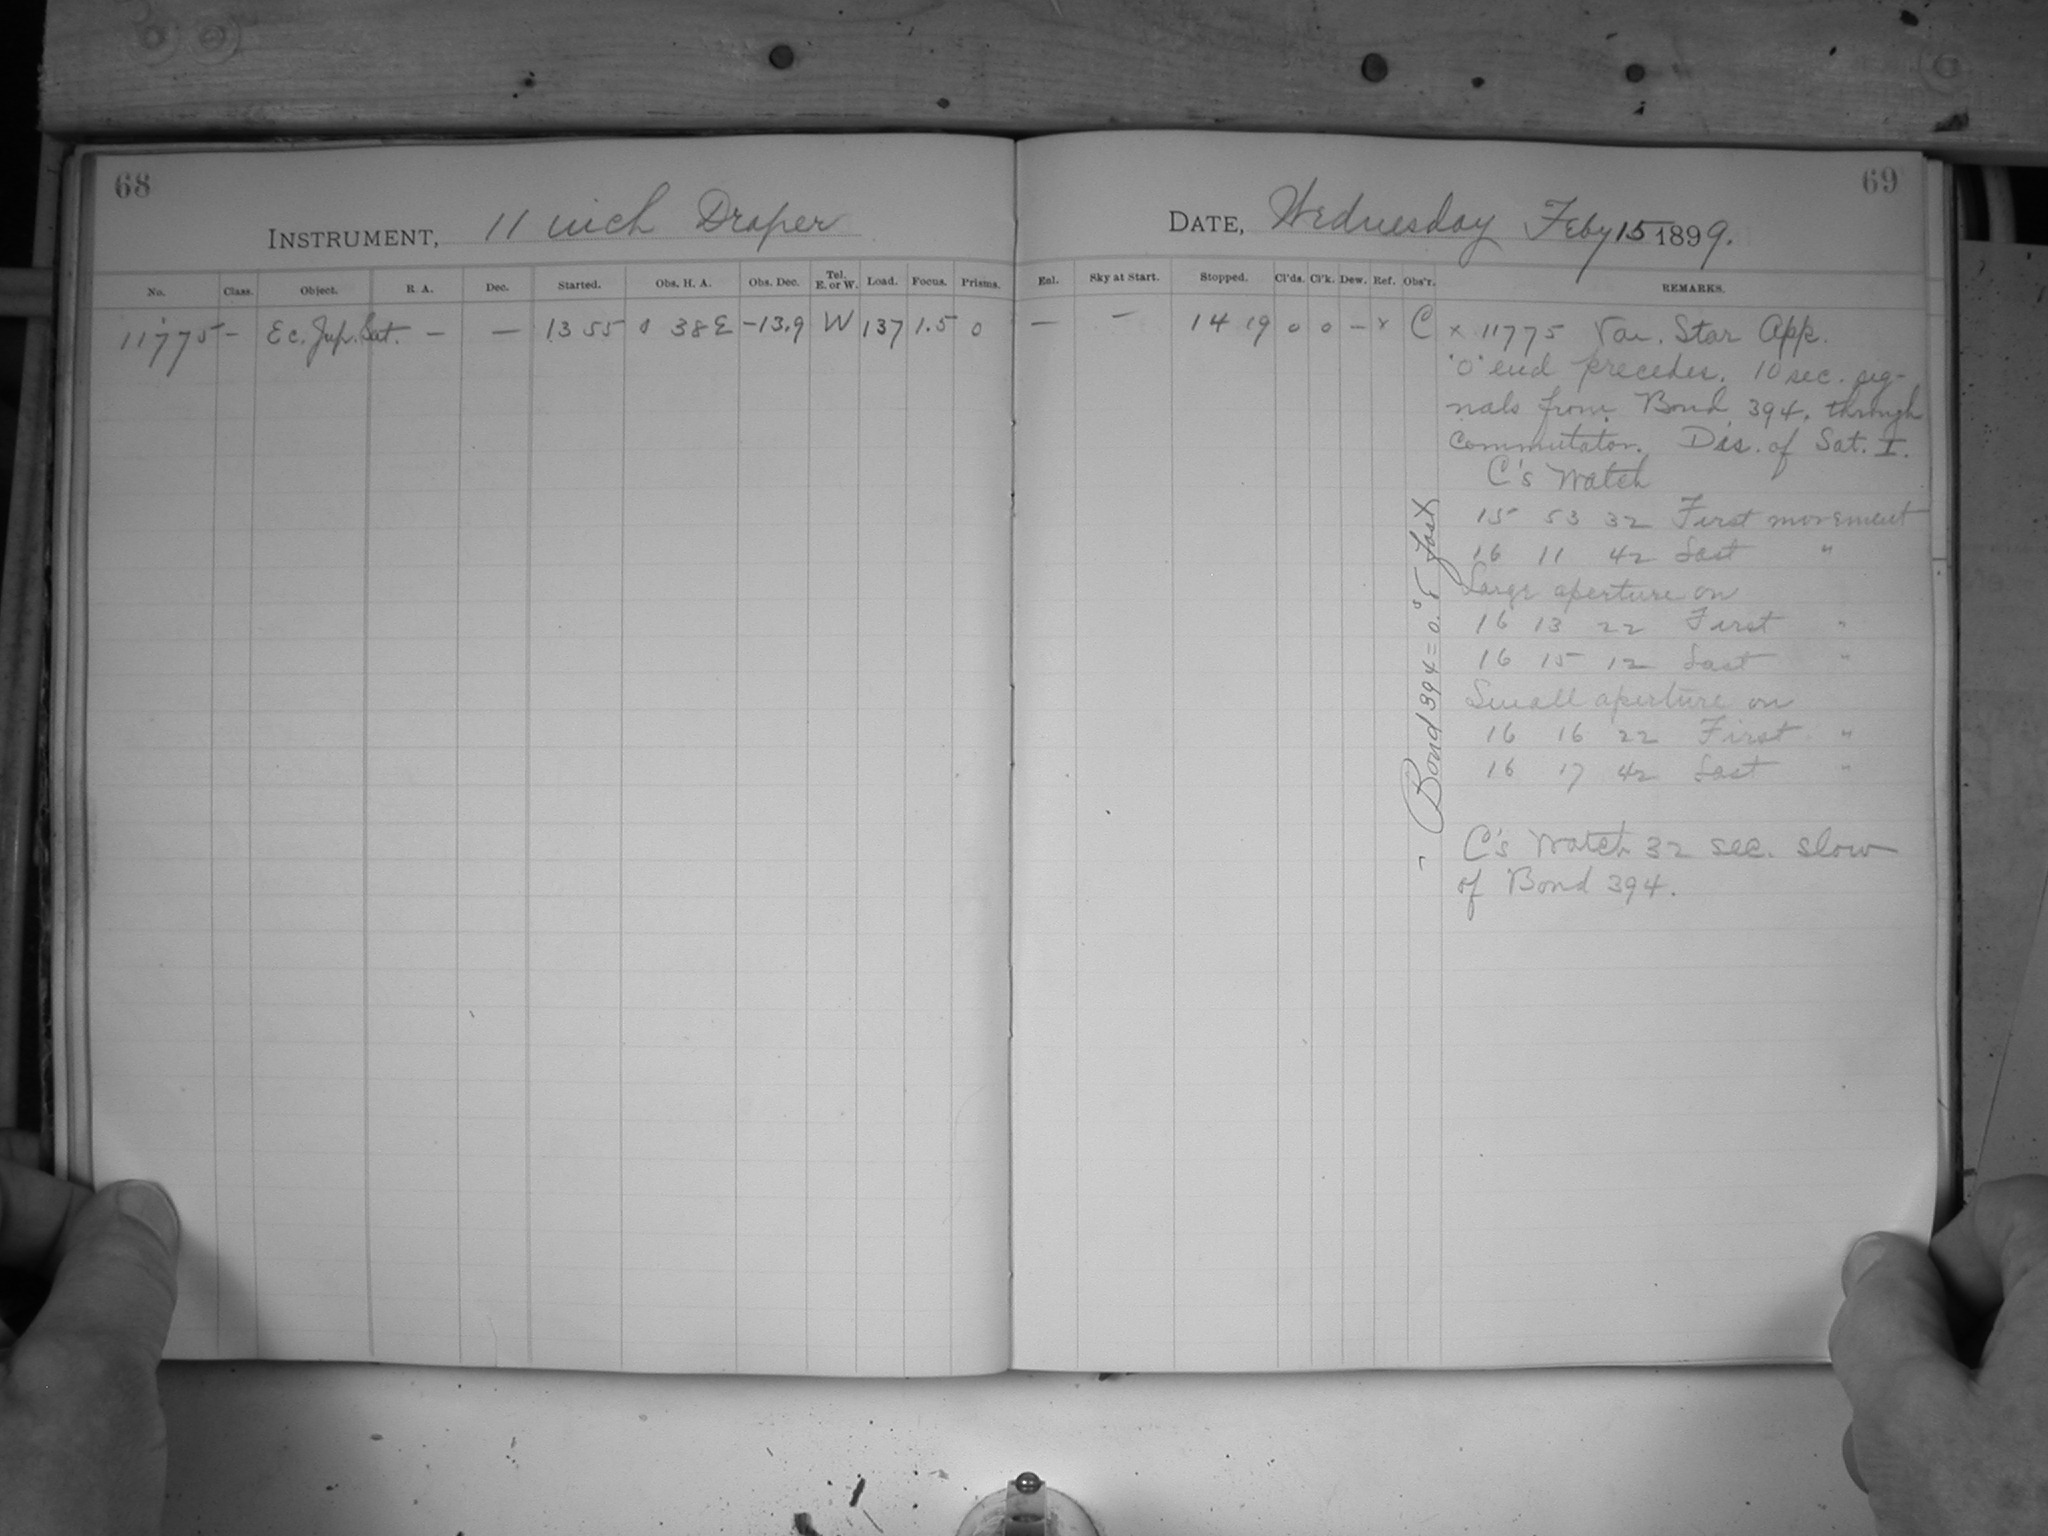 68
INSTRUMENT, 11 inch Draper
No. Class. Object. R. A. Dec. Started. Obs. H. A. Obs. Dec. Tel. E. or W. Load. Focus. Prisms.
11775 – Ec. Jup. Sat. – – 13 55 0 38 E -13.9 W 137 1.5 0
69
DATE, Wednesday Feby 15 1899.
Enl. Sky at Start. Stopped. Cl'ds. Cl'k. Dew. Ref. Obs'r. REMARKS.
– – 14 19 0 0 – x C x 11775 Var. Star App.
"0" end precedes. 10 sec. sig-
nals from Bond 394, through
Commutator. Dis. of Sat. I.
C's Watch
15 53 32 First movement
16 11 42 Last "
Large aperture on
16 13 22 First "
16 15 12 Last "
Small aperture on
16 16 22 First "
16 17 42 Last "
C's Watch 32 sec. slow
of Bond 394.
Bond 394 = fast